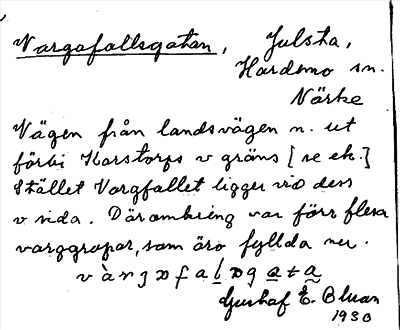 Vargafallsgatan, Julsta,
Hardemo sn.
Närke
Vägen från landsvägen n. ut
förbi Karstorps v gräns [se ek.]
Stället Vargfallet ligger vid dess
v sida. Däromkring var förr flera
varggropar, som äro fyllda nu.
Gustaf E. Bluan
1930